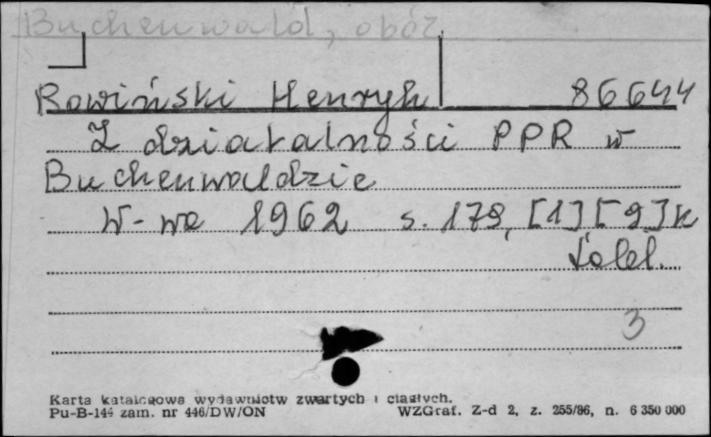 Buchenwald, obóz
Rowiński Henryk 86644
Z działalności PPR w
Buchenwaldzie
W-wa 1962 s. 178, [1] [9] k
tabl.
3
Karta katalogowa wydawnictw zwartych i ciągłych.
Pu-B-144 zam. nr 446/DW/ON WZGraf. Z-d 2, z. 255/86, n. 6 350 000